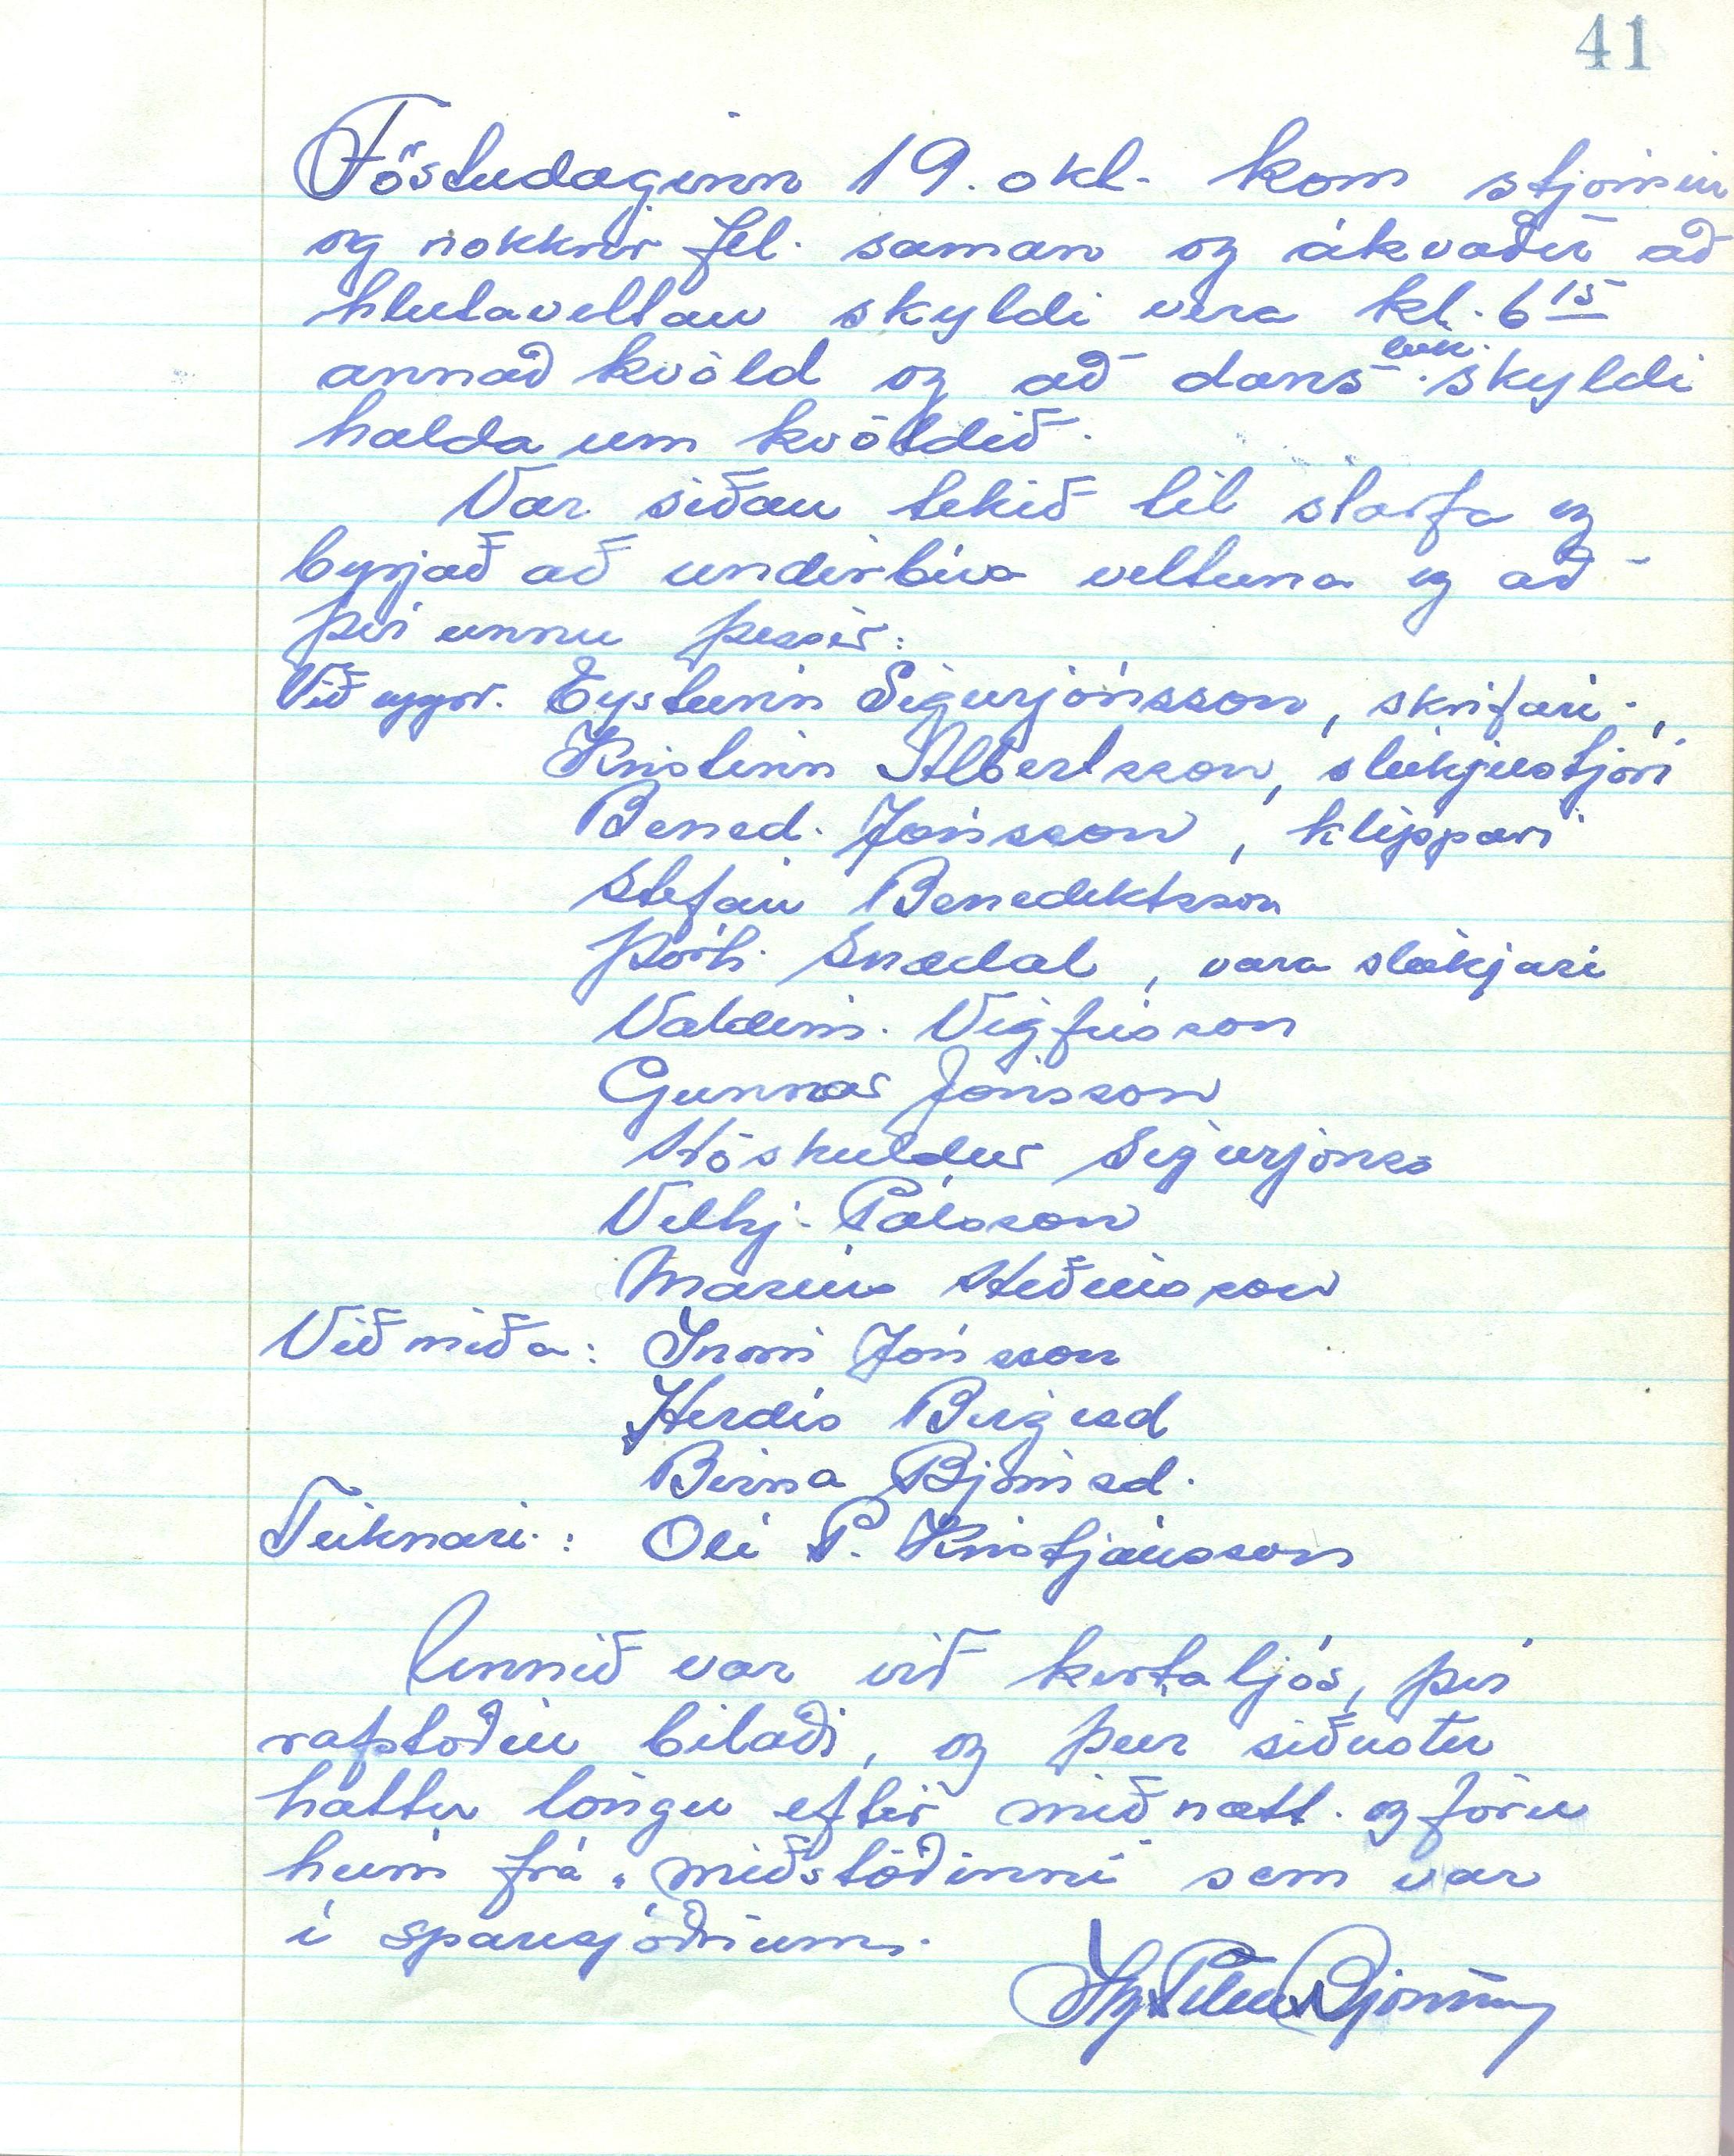 41
Föstudaginn 19. okt. kom stjórnin
og nokkrir fél. saman og ákvaðu að
hlutaveltan skyldi vera kl. 6 15
annað kvöld og að dans leik. skyldi
halda um kvöldið.
Var síðan tekið til starfa og
byrjað að undirbúa veltuna og að
því unnu þessir:
Við Eysteinn Sigurjónsson, skrifari.,
Kristinn Albertsson, stækjustjóri
Bened. Jónsson, klippari
Stefán Benediktsson
Þórh. Snædal, vara stækjari
Valdim. Vigfússon
Gunnar Jónsson
Höskuldur Sigurjónss
Vilhj. Pálsson
Maríus Héðinsson
Við miða: Inmi Jónsson
Herdís Birgisd
Birna Björnsd.
Teiknari.: Oli P. Kristjánsson
Unnið var við kertaljós, því
rafstöðin bilaði, og þeir síðustu
hættu löngu eftir miðnætt. og fóru
heim frá „miðstöðinni" sem var
í sparisjóðnum.